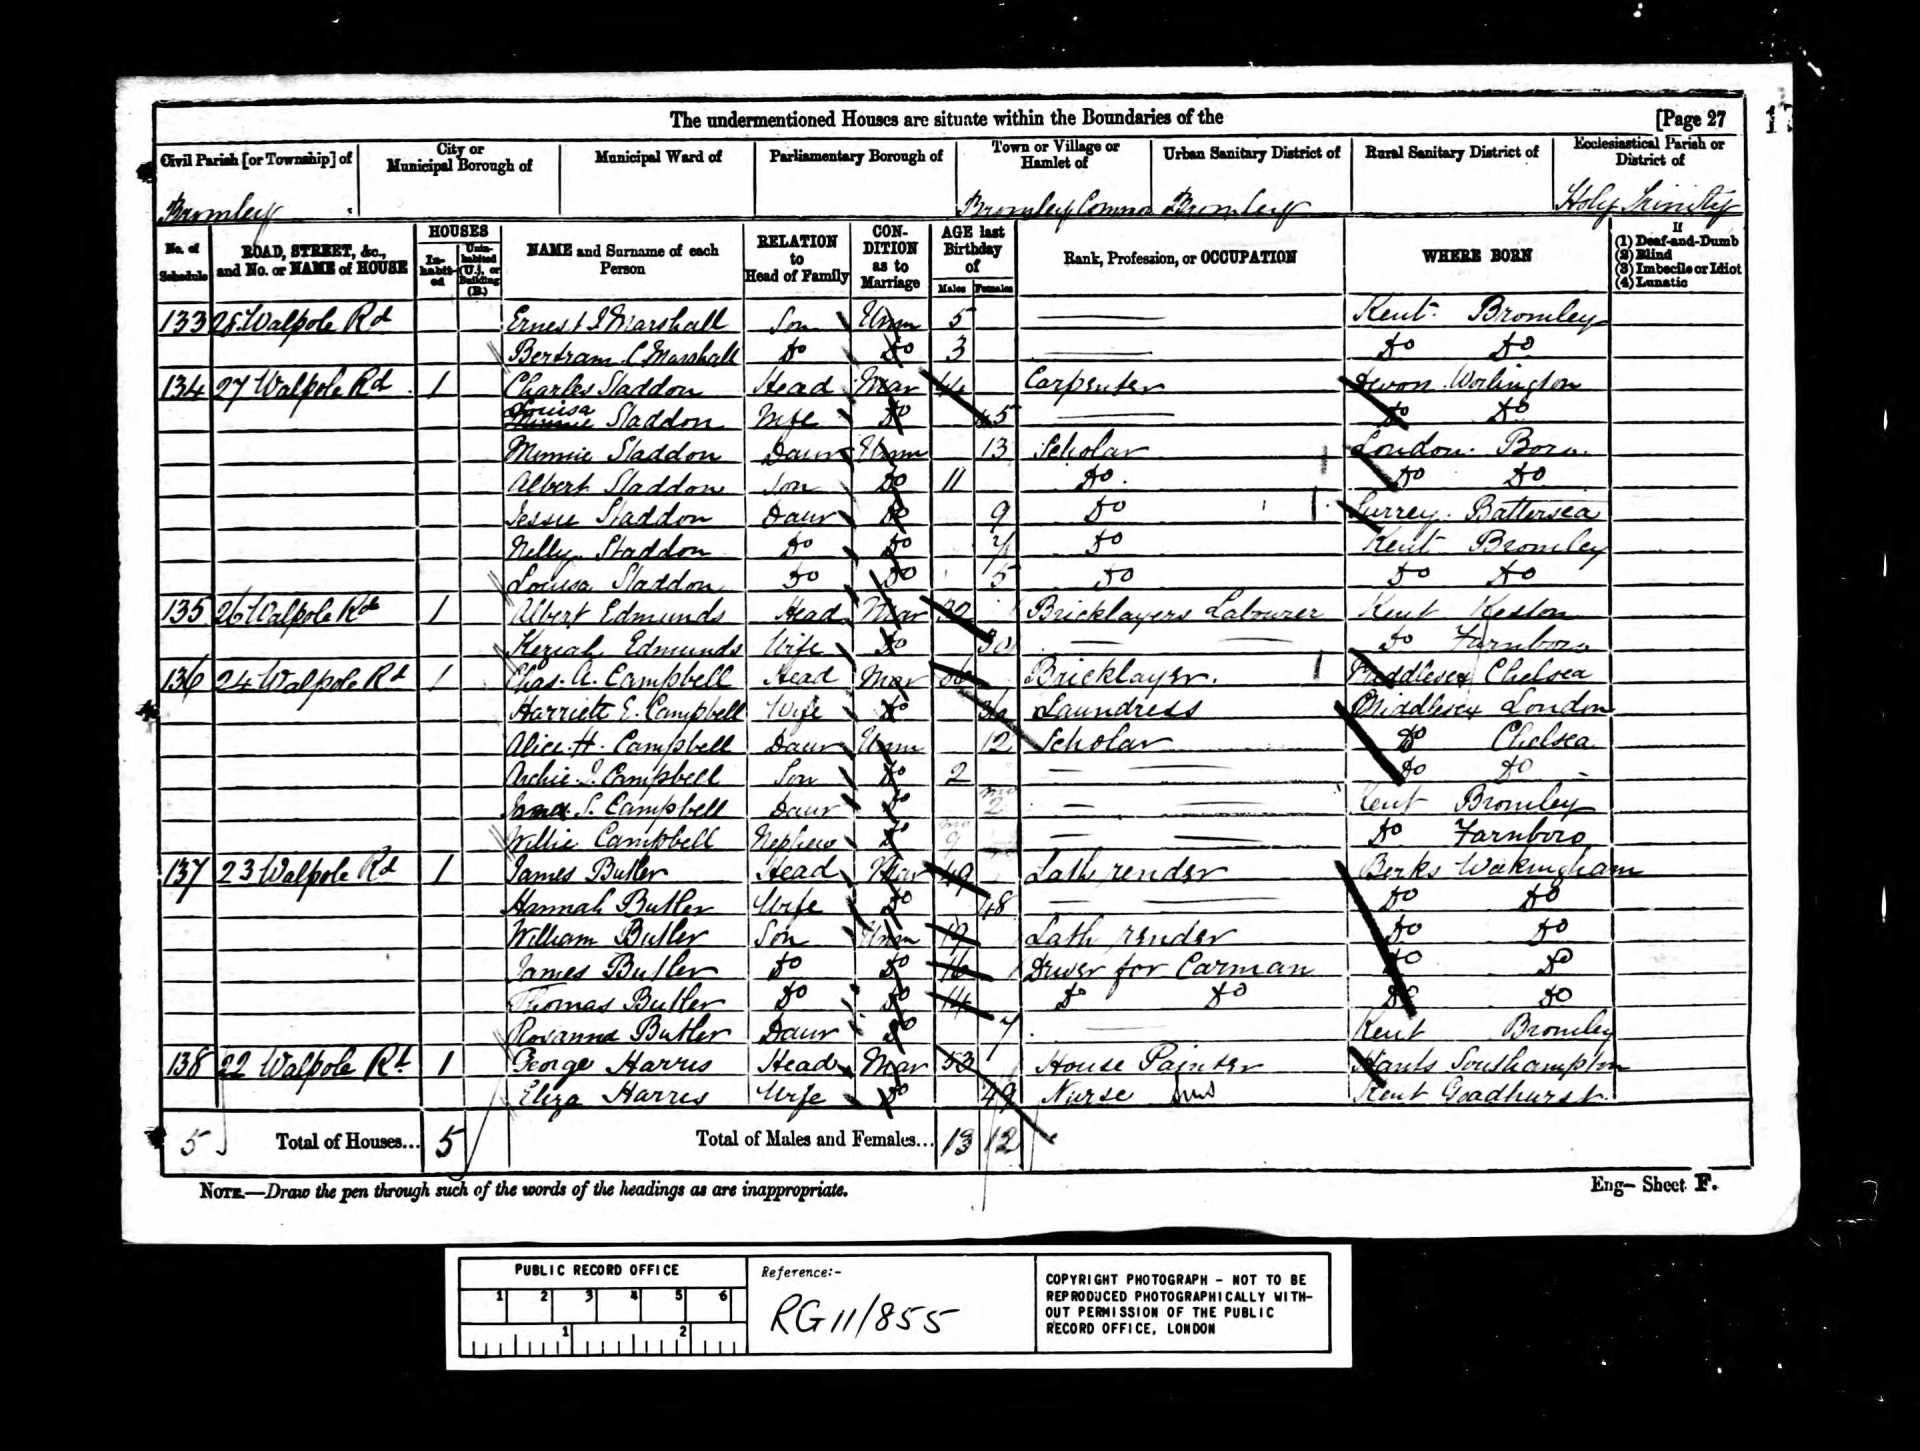 The undermentioned Houses are situate within the Boundaries of the [Page 27
Civil Parish [or Township] of City or Municipal Borough of Municipal Ward of Parliamentary Borough of Town or Village or Hamlet of Urban Sanitary District of Rural Sanitary District of Ecclesiastical Parish or District of
Bromley Bromley Common Bromley Holy Trinity
No. of Schedule ROAD, STREET, &c., and No. or NAME of HOUSE HOUSES Inhabited Uninhabited (U.), or Building (B.) NAME and Surname of each Person RELATION to Head of Family CONDITION as to Marriage AGE last Birthday of Males Females Rank, Profession, or OCCUPATION WHERE BORN If (1) Deaf-and-Dumb (2) Blind (3) Imbecile or Idiot (4) Lunatic
133 28 Walpole Rd Ernest J Marshall Son Unm 5 Kent Bromley
Bertram C Marshall Do Do 3 Do Do
134 27 Walpole Rd 1 Charles Staddon Head Mar 44 Carpenter Devon Worlington
Louisa Staddon Wife Do 45 Do Do
Minnie Staddon Daur Unm 13 Scholar London Boro
Albert Staddon Son Do 11 Do Do Do
Jessie Staddon Daur Do 9 Do Surrey Battersea
Nelly Staddon Do Do Do Kent Bromley
Louisa Staddon Do Do 5 Do Do Do
135 26 Walpole Rd 1 Albert Edmunds Head Mar Bricklayers Labourer Kent Keston
Keziah Edmunds Wife Do 30 Do Farnboro
136 24 Walpole Rd 1 Chas. A. Campbell Head Mar Bricklayer Middlesex Chelsea
Harriett E. Campbell Wife Do Laundress Middlesex London
Alice H. Campbell Daur Unm 12 Scholar Do Chelsea
Archie J. Campbell Son Do 2 Do Do
S. Campbell Daur Do mo 2 Kent Bromley
Willie Campbell Nephew Do mo 9 Do Farnboro
137 23 Walpole Rd 1 James Butler Head Mar 49 Lath render Berks Wokingham
Hannah Butler Wife Do 48 Do Do
William Butler Son Unm 19 Lath render Do Do
James Butler Do Do 16 Driver for Carman Do Do
Thomas Butler Do Do 14 Do Do Do Do
Rosanna Butler Daur Do 7 Kent Bromley
138 22 Walpole Rd 1 George Harris Head Mar 53 House Painter Hants Southampton
Eliza Harris Wife Do 49 Nurse Kent Goudhurst
5 Total of Houses... 5 Total of Males and Females... 13 12
NOTE.—Draw the pen through such of the words of the headings as are inappropriate. Eng— Sheet F.
PUBLIC RECORD OFFICE
1 2 3 4 5 6
1 2
Reference:-
RG 11/855
COPYRIGHT PHOTOGRAPH - NOT TO BE
REPRODUCED PHOTOGRAPHICALLY WITH-
OUT PERMISSION OF THE PUBLIC
RECORD OFFICE, LONDON